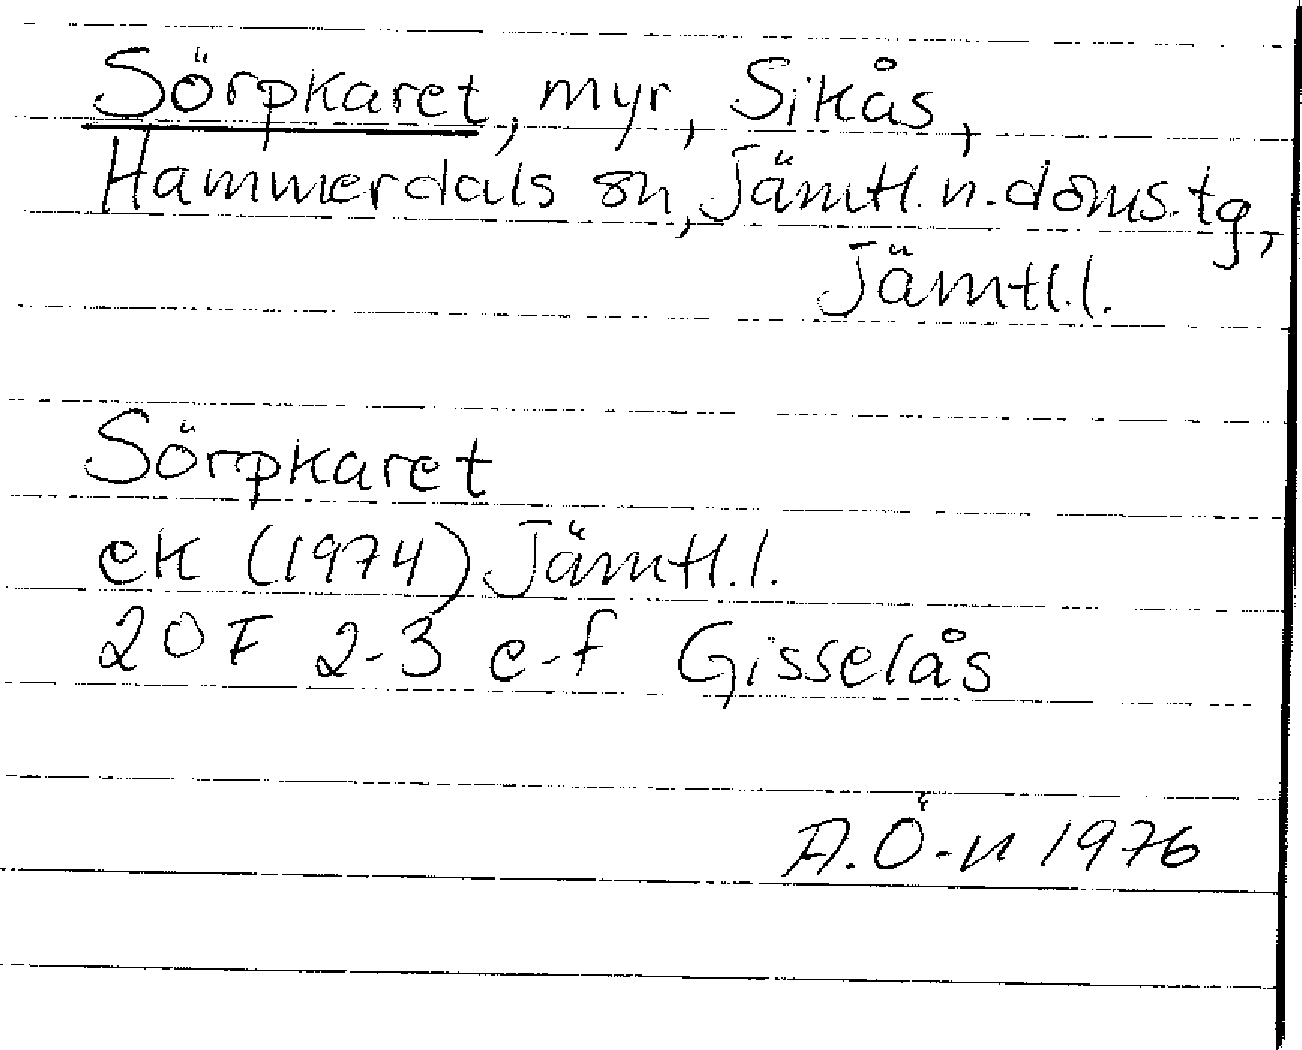 Sörpkaret, myr, Sikås,
Hammerdals sn, Jämtl. n. doms. tg,
Jämtl. l.
Sörpkaret
ek (1974) Jämtl. l.
20F 2-3 e-f Gisselås
A. Ö-n 1976